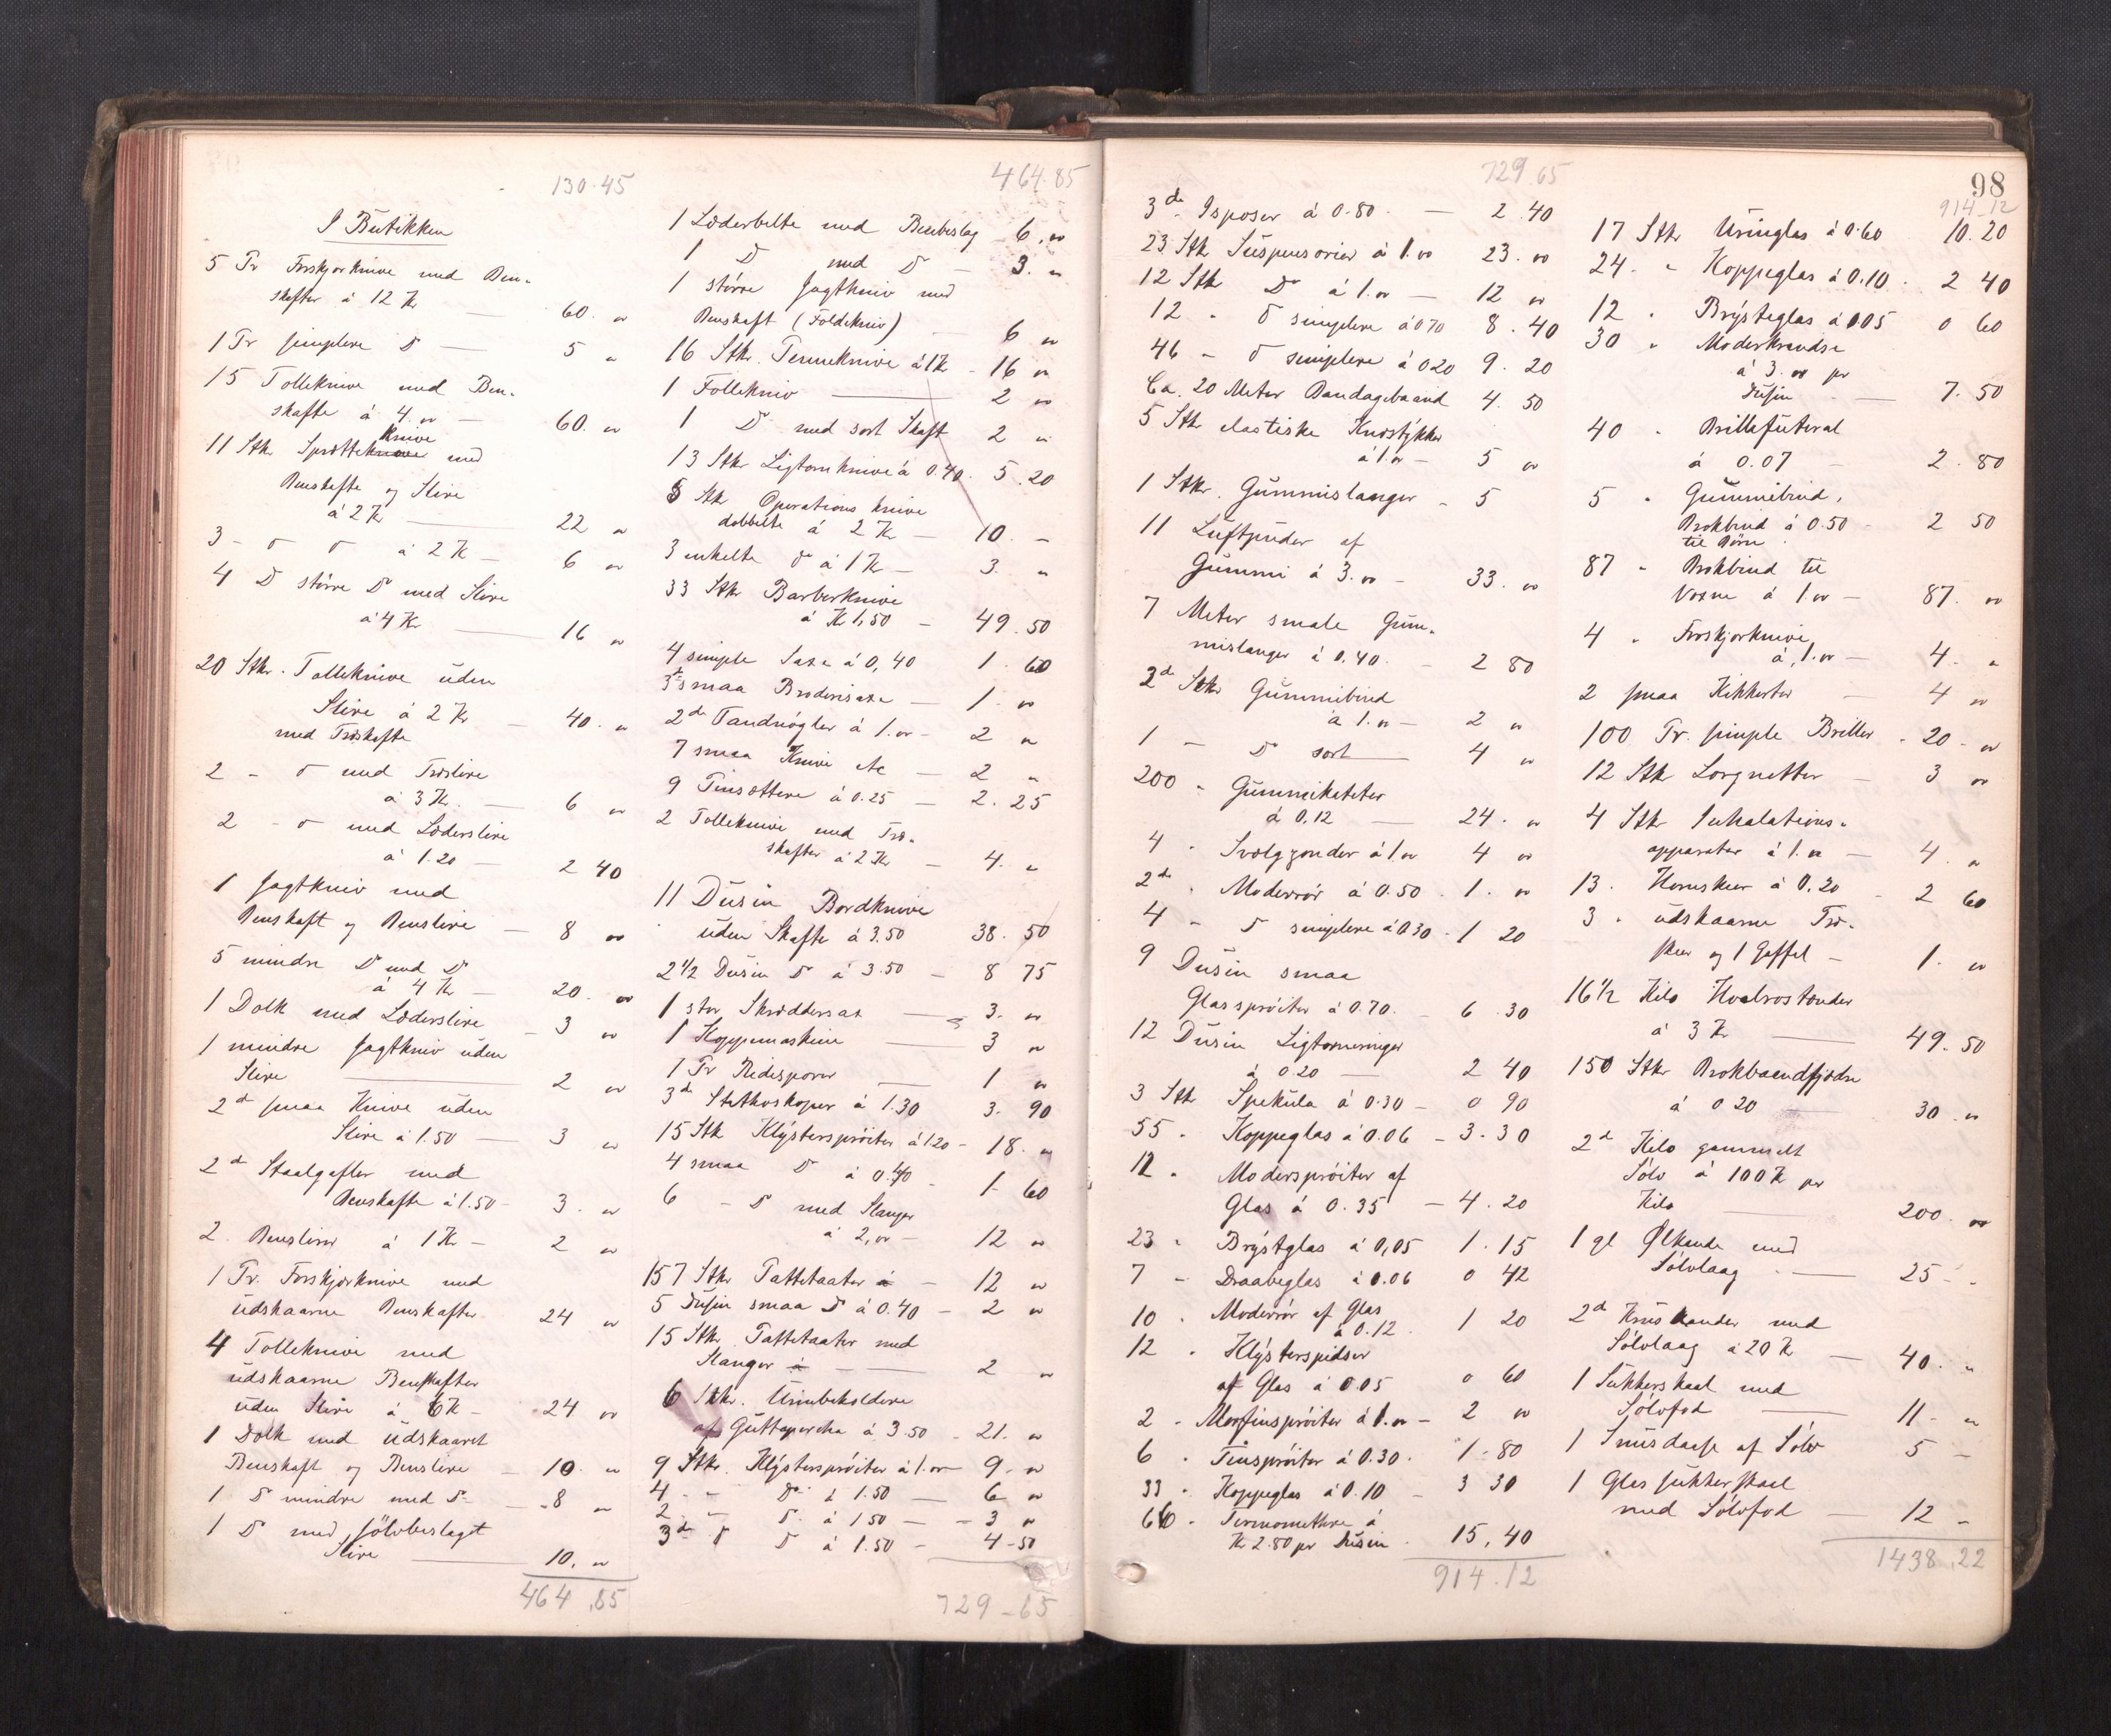 130.45
I Butikken
5 Pr Forskjærknive med Ben-
skafter à 12 Kr — 60. "
1 Pr simplere D — 5 "
15 Tolleknive med Ben-
skafte à 4.00 — 60. "
knive
11 Stk Sprætteknive med
Benskafte og Slire
à 2 Kr — 22 "
3 - D D à 2 Kr — 6 "
4 D större D med Slire
à 4 Kr — 16 "
20 Stkr. Tolleknive uden
Slire à 2 Kr — 40. "
med Træskafte
2 - D med Træslire
à 3 Kr. — 6 "
2 - D med Læderslire
à 1.20 — 2 40
1 Jagtkniv med
Benskaft og Benslire — 8 "
5 mindre D med D
à 4 Kr — 20. "
1 Dolk med Læderslire — 3 "
1 mindre Jagtkniv uden
Slire — 2 "
2 smaa Knive uden
Slire à 1.50 — 3 "
2 Staalgafler med
Benskafte à 1.50 - 3. "
2. Benslirer à 1 Kr — 2 "
1 Pr. Forskjærknive med
udskaarne Benskafter 24 "
4 Tolleknive med
udskaarne Benskafter
uden Slire à 6 Kr - 24 "
1 Dolk med udskaaret
Benskaft og Benslire - 10. "
1 D mindre med D - 8 "
1 D med sölvbeslaget
Slire — 10. "
464.85
464.85
1 Læderbelte med Benbeslag 6. "
1 D med D — 3. "
1 större Jagtkniv med
Benskaft (Foldekniv) — 6 "
16 Stkr. Penneknive à 1 Kr - 16 "
1 Follekniv — 2 "
1 D med sort Skaft 2 "
13 Stkr Ligtornknive à 0.40. 5.20
5 Stk Operations knive
dobbelte à 2 Kr — 10. -
3 enkelte D à 1 Kr — 3 "
33 Stkr Barberknive
à Kr 1,50 - 49.50
4 simple Saxe à 0,40 1.60
3 smaa Broderisaxe — 1. "
2 Tandnøgler à 1.00 - 2 "
7 smaa Knive etc — 2 "
9 Pinsettere à 0.25 — 2.25
2 Tolleknive med Træ-
skafter à 2 Kr — 4. "
11 Dusin Bordknive
uden Skafte à 3.50 38.50
2 1/2 Dusin D à 3.50 - 8 75
1 stor Skræddersax — 3. "
1 Koppemaskine — 3 "
1 Pr Ridesporer — 1 "
3 Stethoskoper à 1.30 3. 90
15 Stk Klystersprøiter à 1.20 - 18. "
4 smaa D à 0.40 - 1 60
6 - D med Slanger
à 2,00 — 12 "
157 Stkr Pattetaater à — 12 "
5 Dusin smaa D à 0.40 - 2 "
15 Stkr. Pattetaater med
Slanger à — 2 "
6 Stkr. Urinbeholdere
af Guttapercha à 3.50 - 21. "
9 Stkr. Klystersprøiter à 1.00 - 9. "
4 - D à 1.50 — 6 "
2 - D. à 1.50 — 3 "
3 D D à 1.50 — 4-50
729-65
729.65
3 Isposer à 0.80. — 2.40
23 Stk Suspensorier à 1.00 23.00
12 Stk D à 1.00 — 12 "
12 - D simplere à 0 70 8.40
46 - D simplere à 0 20 9.20
Ca. 20 Meter Bandagebaand 4.50
5 Stk elastiske Knæstykker
à 1.00 — 5 "
1 Stkr. Gummislanger - 5
11 Luftpuder af
Gummi à 3.00 - 33. "
7 Meter smale Gum-
mislanger à 0,40. - 2 80
2 Stkr Gummibind
à 1.00 — 2 "
1 - D sort — 4 "
200 - Gummikateter
à 0,12 — 24. "
4 - Svælgsonder à 1.00 4 "
2 - Moderrør à 0.50 - 1. "
4 - D simplere à 0.30 - 1 20
9 Dusin smaa
Glassprøiter à 0.70. - 6 30
12 Dusin Ligtornringer
à 0.20 — 2 40
3 Stk Spekula à 0.30 - 0 90
55 - Koppeglas à 0.06 - 3.30
12 - Modersprøiter af
Glas à 0.35 — 4.20
23 - Brystglas à 0,05 1.15
7 - Draabeglas à 0.06 0 42
10 - Moderrør af Glas
à 0.12. 1 20
12 - Klysterspidser
af Glas à 0.05 0 60
2 - Morfinsprøiter à 1.00 - 2 "
6 - Tinsprøiter à 0.30. 1.80
33 - Koppeglas à 0.10 - 3 30
66 - Termomethre à
Kr 2.80 pr Dusin. 15,40
914.12
98
914-12
17 Stkr Uringlas à 0.60 10.20
24. - Koppeglas à 0,10. 2 40
12 - Brysteglas à 0.05 0 60
30 - Moderkrandse
à 3.00 pr
Dusin — 7.50
40 - Brillefuteral
à 0.07 — 2.80
5 - Gummibind,
Brokbind à 0.50 - 2 50
til Børn.
87 - Brokbind til
Voxne à 1.00 — 87. "
4 - Forskjærknive,
à 1.00 — 4. "
2 smaa Kikkerter — 4 "
100 Pr. simple Briller - 20 - "
12 Stk Lorgnetter — 3 "
4 Stk Inhalations-
apparater à 1.00 — 4. "
13. Hornskeer à 0,20 - 2 60
3 - udskaarne Træ-
skeer og 1 Gaffel — 1. "
16 1/2 Kilo Hvalrostænder
à 3 Kr — 49.50
150 Stkr Brokbaandfjædre
à 0 20 — 30. "
2 Kilo gammelt
Sölv à 100 Kr pr
Kilo — 200. "
1 gl Ølkande med
Sölvlaag — 25 - -
2 Kruskander med
Sölvlaag à 20 Kr — 40. "
1 Sukkerskaal med
Sölvfod — 11 - "
1 Snusdaase af Sölv 5 -
1 Glas sukkerskaal
med Sölvfod — 12 -
1438.22